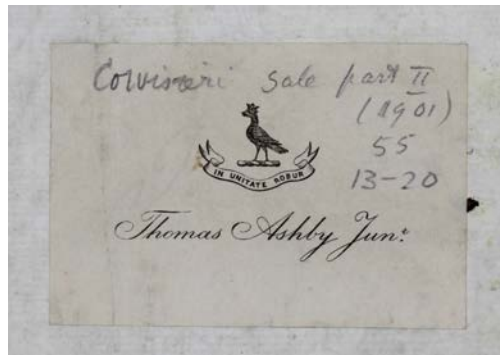 Corvisieri sale part II
(1901)
55
13-20
IN UNITATE ROBUR
Thomas Ashby Junr.